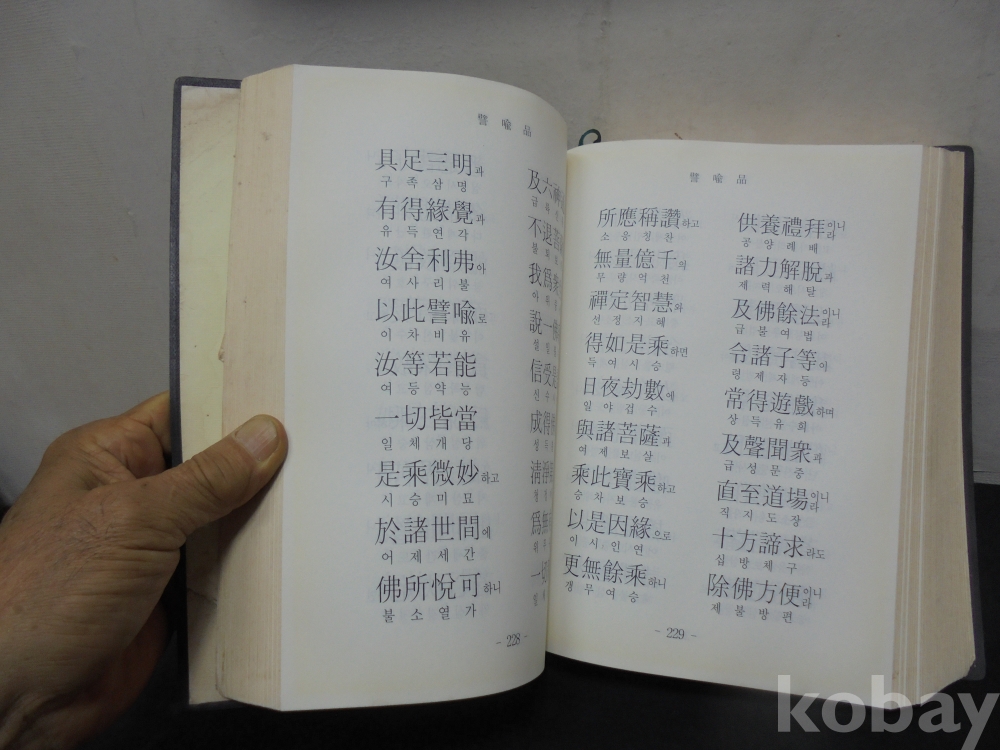 譬喩品
具足三明과 及六神
구족삼명 급
有得緣覺과 不退
유득연각 불퇴
汝舍利弗아 我爲衆
여사리불 아위
以此譬喩로 說一佛
이차비유 설일
汝等若能 信受
여등약능 신수
一切皆當 成得
일체개당 성득
是乘微妙하고 淸淨
시승미묘 청
於諸世間에 爲無
어제세간 위무
佛所悅可하니 一切
불소열가 일
- 228 -
譬喩品
所應稱讚하고 供養禮拜이니라
소응칭찬 공양례배
無量億千의 諸力解脫과
무량억천 제력해탈
禪定智慧와 及佛餘法이니라
선정지혜 급불여법
得如是乘하면 令諸子等이
득여시승 령제자등
日夜劫數에 常得遊戲하며
일야겁수 상득유희
與諸菩薩과 及聲聞衆과
여제보살 급성문중
乘此寶乘하고 直至道場이니라
승차보승 직지도장
以是因緣으로 十方諦求라도
이시인연 십방체구
更無餘乘하니 除佛方便이니라
갱무여승 제불방편
- 229 -
kobay